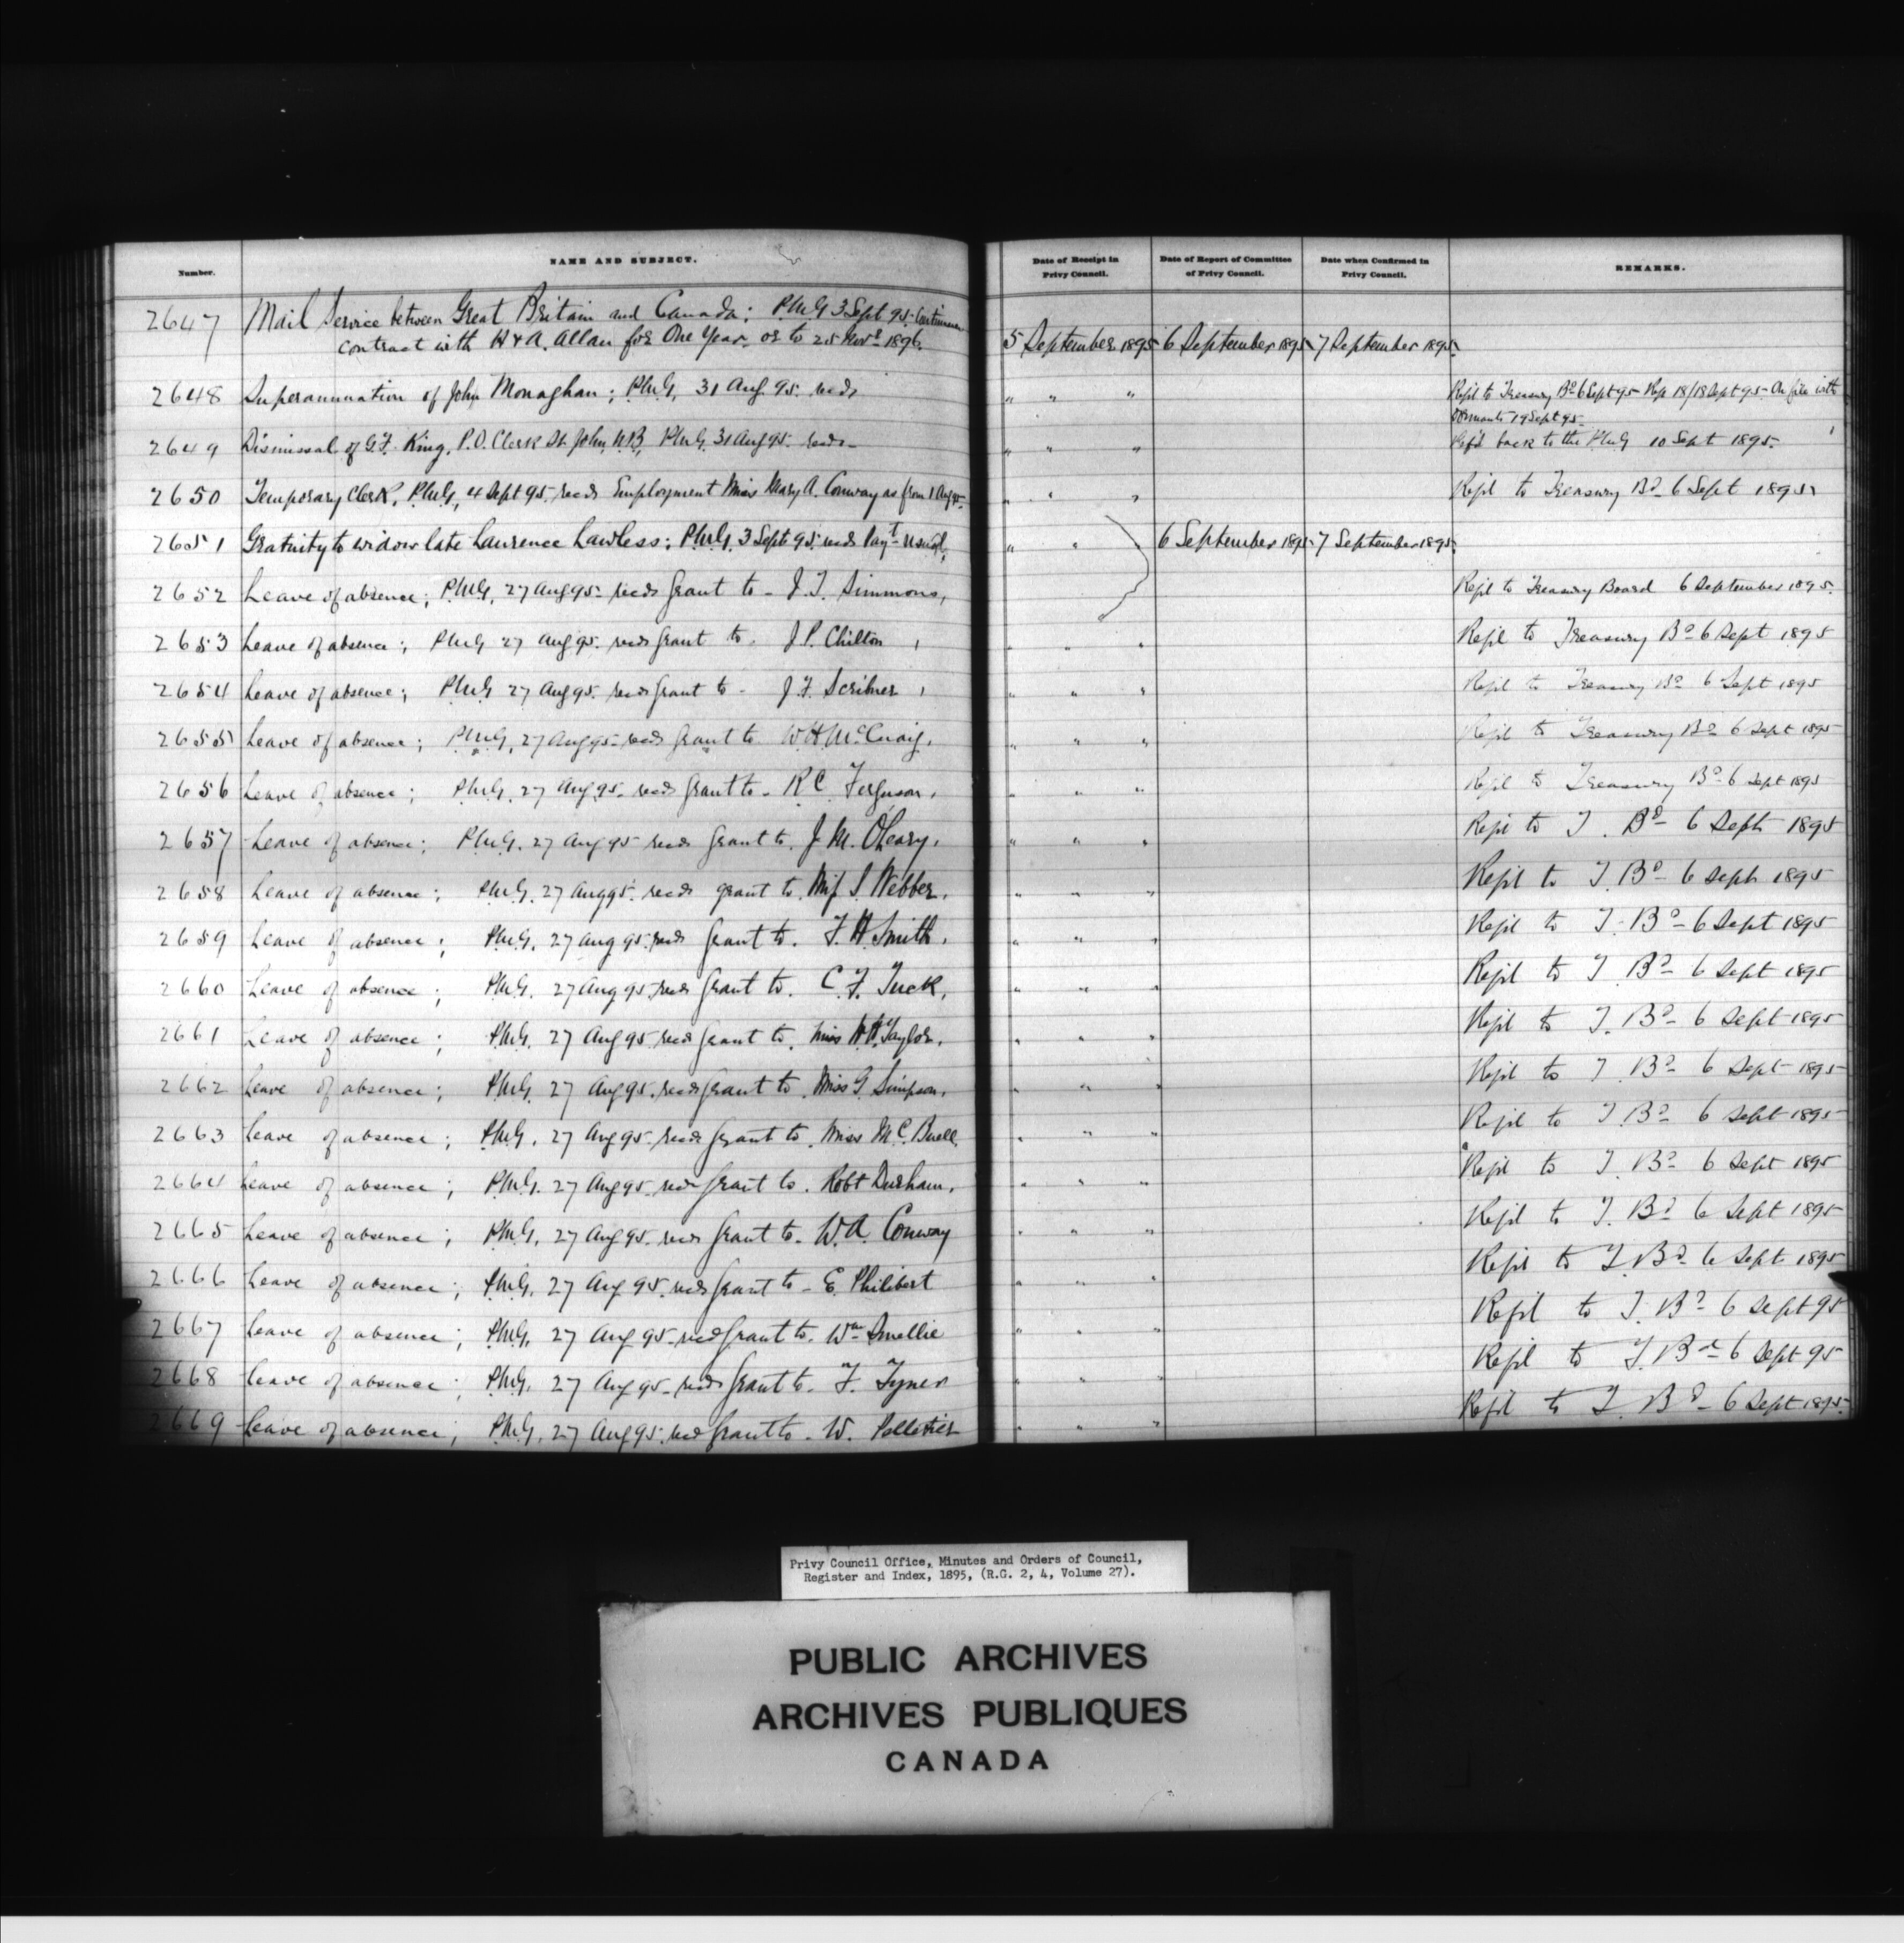 Number.
NAME AND SUBJECT.
Date of Receipt in Privy Council.
Date of Report of Committee of Privy Council.
Date when Confirmed in Privy Council.
REMARKS.
2647 Mail Service between Great Britain and Canada; P.M.G 3 Sept 95.
contract with H & A. Allan for One Year or to 25 Novr 1896. 5 September 1895 6 September 1895 7 September 1895
2648 Superannuation of John Monaghan; P.M.G. 31 Aug 95. recds " " " Refd to Treasury Bd 6 Sept 95 Rep 18/18 Sept 95 On file with
dormants 19 Sept 95.
2649 Dismissal of G.F. King, P.O. Clerk St. John, N.B. P.M.G. 31 Aug 95 recds " " " Refd back to the P.M.G 10 Sept 1895
2650 Temporary Clerk, P.M.G, 4 Sept 95, recds Employment Miss Mary A. Conway as from 1 Aug 95 " " " Refd to Treasury Bd 6 Sept 1895
2651 Gratuity to widow late Laurence Lawless; P.M.G. 3 Sept 95 recds Payt usual, " " " 6 September 1895 7 September 1895
2652 Leave of absence; P.M.G, 27 Aug 95 recds Grant to - J. T. Simmons, Refd to Treasury Board 6 September 1895.
2653 Leave of absence; P.M.G 27 Aug 95. recds Grant to. J.P. Chillon, " " " Refd to Treasury Bd 6 Sept 1895
2654 Leave of absence; P.M.G 27 Aug 95. recds Grant to - J.F. Scribner, " " " Refd to Treasury Bd 6 Sept 1895
2655 Leave of absence; P.M.G, 27 Aug 95 recds Grant to W H McCuaig, " " " Refd to Treasury Bd 6 Sept 1895
2656 Leave of absence; P.M.G. 27 Aug 95. recds Grant to - R C Ferguson, " " " Refd to Treasury Bd 6 Sept 1895
2657 Leave of absence; P.M.G. 27 Aug 95 recds Grant to, J. M. O'Leary, " " " Refd to T. Bd 6 Sept 1895
2658 Leave of absence; P.M.G. 27 Aug 95. recds grant to, Miss S Webber, " " " Refd to T. Bd 6 Sept 1895
2659 Leave of absence; P.M.G. 27 Aug 95 recds Grant to. F. H Smith, " " " Refd to T. Bd 6 Sept 1895
2660 Leave of absence; P.M.G. 27 Aug 95 recds Grant to. C. F. Tuck, " " " Refd to T. Bd 6 Sept 1895
2661 Leave of absence; P.M.G. 27 Aug 95 recds Grant to, Miss H H Taylor, " " " Refd to T. Bd 6 Sept 1895
2662 Leave of absence; P.M.G. 27 Aug 95. recds Grant to, Miss G. Simpson, " " " Refd to T. Bd 6 Sept 1895
2663 Leave of absence; P.M.G. 27 Aug 95 recds Grant to, Miss M C. Buell " " " Refd to T. Bd 6 Sept 1895
2664 Leave of absence; P.M.G. 27 Aug 95 recds Grant to. Robt Durham, " " " Refd to T. Bd 6 Sept 1895
2665 Leave of absence; P.M.G. 27 Aug 95. recds Grant to - W. A. Conway " " " Refd to T. Bd 6 Sept 1895
2666 Leave of absence; P.M.G. 27 Aug 95. recds Grant to - E. Philibert " " " Refd to T. Bd 6 Sept 1895
2667 Leave of absence; P.M.G. 27 Aug 95. recds Grant to. Wm Smellie " " " Refd to T. Bd 6 Sept 95
2668 Leave of absence; P.M.G. 27 Aug 95 recds Grant to - F. Tyner " " " Refd to T. Bd 6 Sept 95
2669 Leave of absence; P.M.G. 27 Aug 95. recds Grant to - W. Pelletier " " " Refd to T. Bd 6 Sept 1895
Privy Council Office, Minutes and Orders of Council,
Register and Index, 1895, (R.G. 2, 4, Volume 27).
PUBLIC ARCHIVES
ARCHIVES PUBLIQUES
CANADA